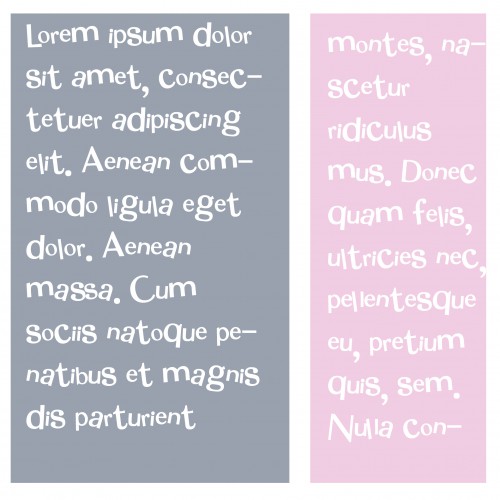 Lorem ipsum dolor
sit amet, consec-
tetuer adipiscing
elit. Aenean com-
modo ligula eget
dolor. Aenean
massa. Cum
sociis natoque pe-
natibus et magnis
dis parturient
montes, na-
scetur
ridiculus
mus. Donec
quam felis,
ultricies nec,
pellentesque
eu, pretium
quis, sem.
Nulla con-